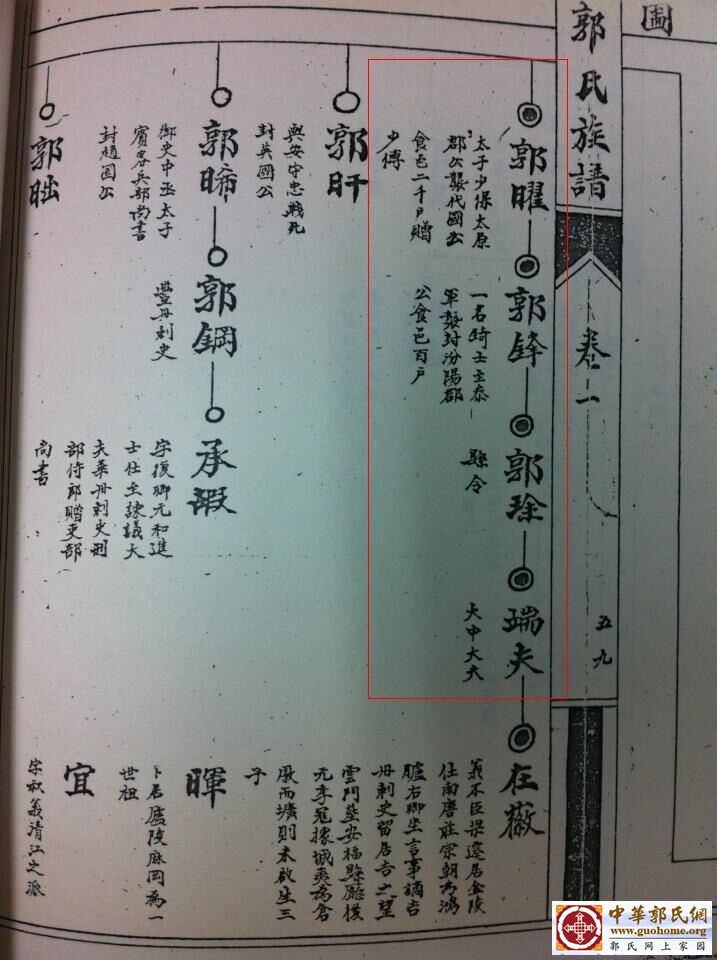 圖
郭氏族譜
卷一
五九
郭曜
太子少保太原
郡公襲代國公
食邑二千戶贈
少傅
郭鋒
一名錡士主泰
軍襲封汾陽郡
公食邑百戶
郭琮
縣令
瑞夫
大中大夫
在薇
義不臣梁遷居金陵
仕南唐莊宗朝為鴻
臚右卿坐言事謫吉
州刺史留居吉之望
雲門墓安福縣廳後
元季冠據城夷為倉
廒而壙則未啟生三
子
郭旰
與安守忠戰死
封英國公
郭晞
御史中丞太子
賓客兵部尚書
封趙國公
郭鋼
豐州刺史
承嘏
字復卿元和進
士仕至諫議大
夫華州刺史刑
部侍郎贈吏部
尚書
暉
卜居廬陵麻岡為一
世祖
郭昢
宜
宗秋義清江之派
中華郭氏網
www.guohome.org
郭氏网上家园